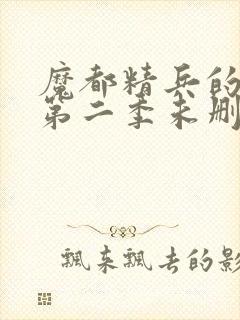 魔都精兵的
第二季未删
飘来飘去的影